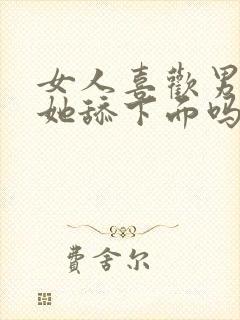 女人喜歡男
她舔下面吗
費舍尔